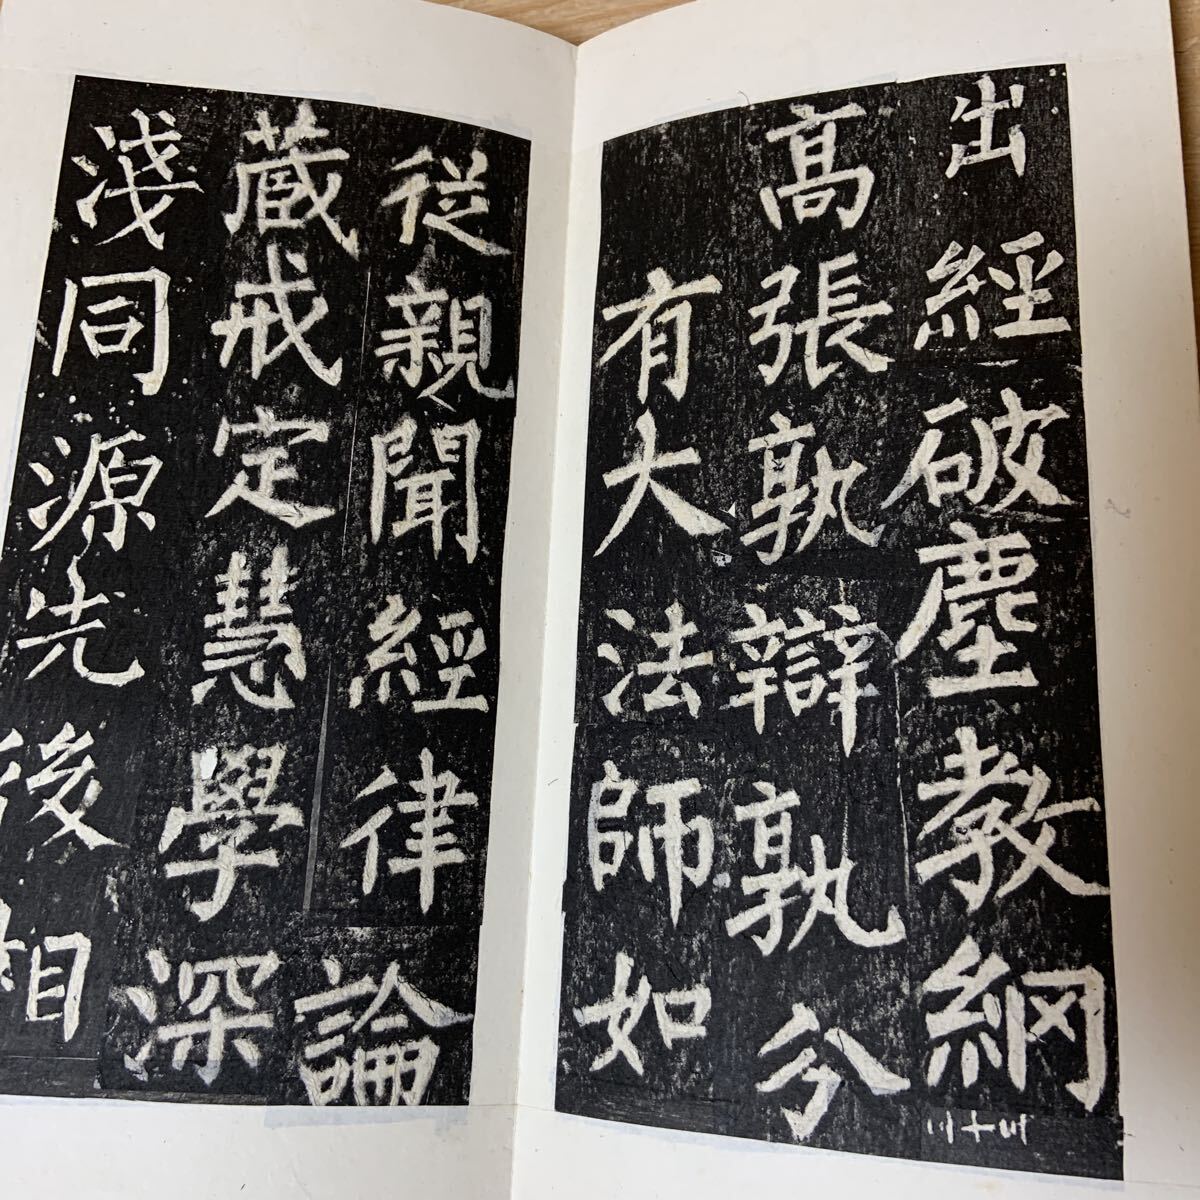 出經破塵教網
高張孰辯孰分
有大法師如
三十三
從親聞經律論
藏戒定慧學深
淺同源先後相